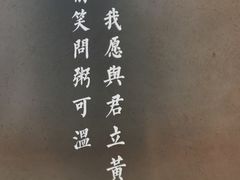 我愿與君立黃
笑問粥可溫